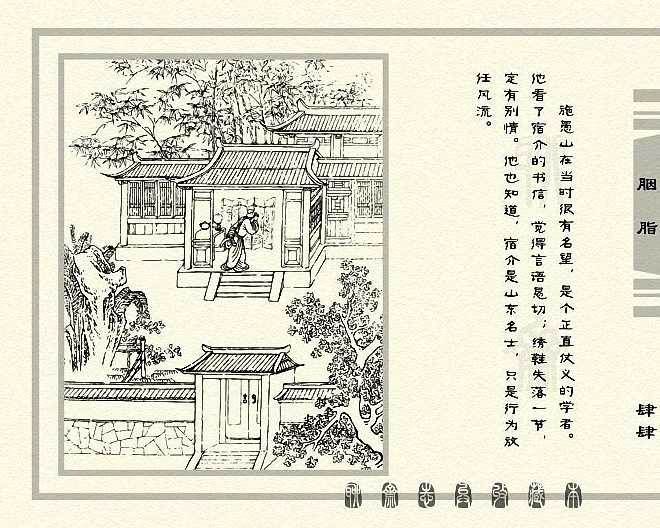 胭脂
肆肆
施愚山在当时很有名望，是个正直仗义的学者。
他看了宿介的书信，觉得言语恳切；绣鞋失落一节，
定有别情。他也知道，宿介是山东名士，只是行为放
任风流。
聊斋志异收藏本